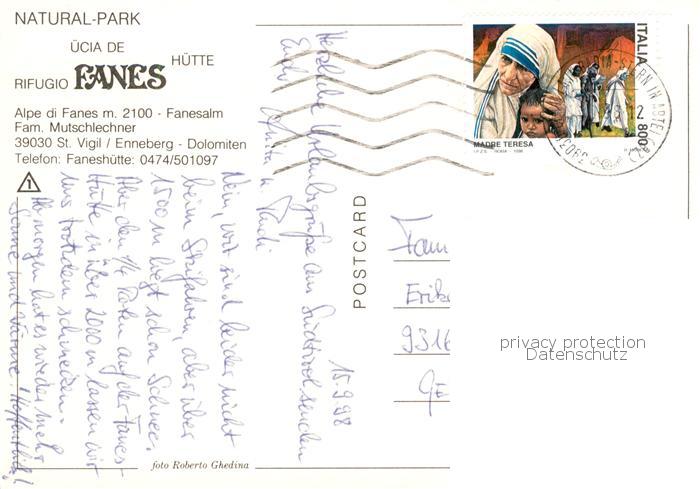 NATURAL-PARK
ÜCIA DE
HÜTTE
RIFUGIO FANES
Alpe di Fanes m. 2100 - Fanesalm
Fam. Mutschlechner
39030 St. Vigil / Enneberg - Dolomiten
Telefon: Faneshütte: 0474/501097
1
ITALIA
800
MADRE TERESA
I.P.Z.S. - ROMA - 1998
POSTCARD
15.9.98
Herzliche Urlaubsgrüße aus Südtirol senden
Euch
Nein, wir sind leider nicht
beim Skifahren, aber über
1500 m liegt schon Schnee.
Aber den auf der Fanes-
Hütte in über 2000 m lassen wir
uns trotzdem schmecken.
Ab morgen hat es wieder mehr
Sonne und Wärme! Hoffentlich!
Fam
Erik
9316
Ge
privacy protection
Datenschutz
foto Roberto Ghedina